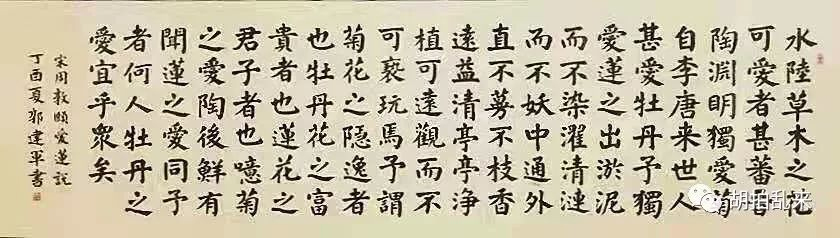 水陸草木之花
可愛者甚蕃晉
陶淵明獨愛菊
自李唐来世人
甚愛牡丹予獨
愛蓮之出淤泥
而不染濯清漣
而不妖中通外
直不蔓不枝香
遠益清亭亭浄
植可遠觀而不
可褻玩焉予謂
菊花之隱逸者
也牡丹花之富
貴者也蓮花之
君子者也噫菊
之愛陶後鮮有
聞蓮之愛同予
者何人牡丹之
愛宜乎眾矣
宋周敦頤愛蓮説
丁酉夏郭建軍書
胡拍乱来